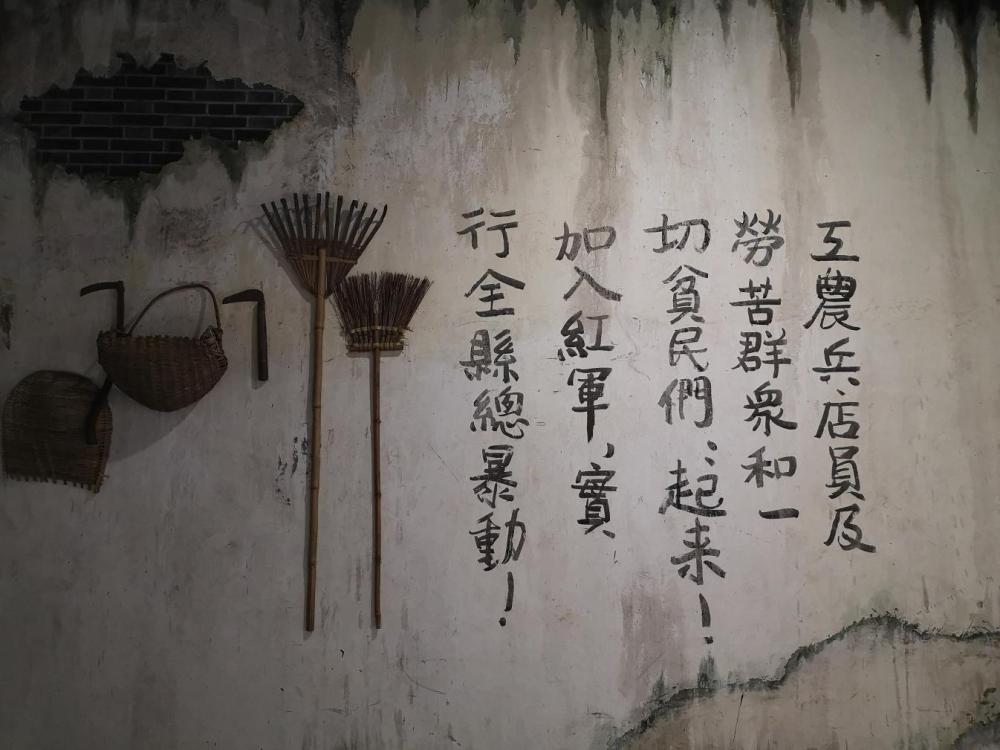 工農兵、店員及
勞苦群衆和一
切貧民們：起来！
加入紅軍，實
行全縣總暴動！